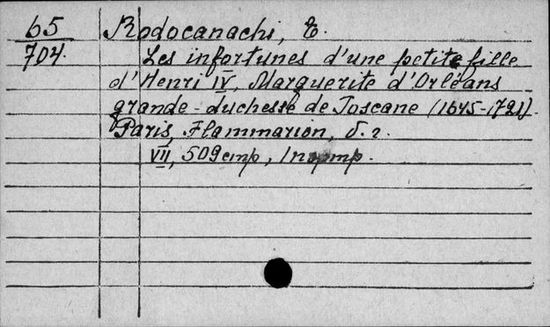 65
704
Rodocanachi, E.
Les infortunes d'une petite fille
d'Henri IV, Marguerite d'Orléans
grande-duchesse de Toscane (1645-1721).
Paris, Flammarion, б. г.
VII, 509 стр, 1 портр.